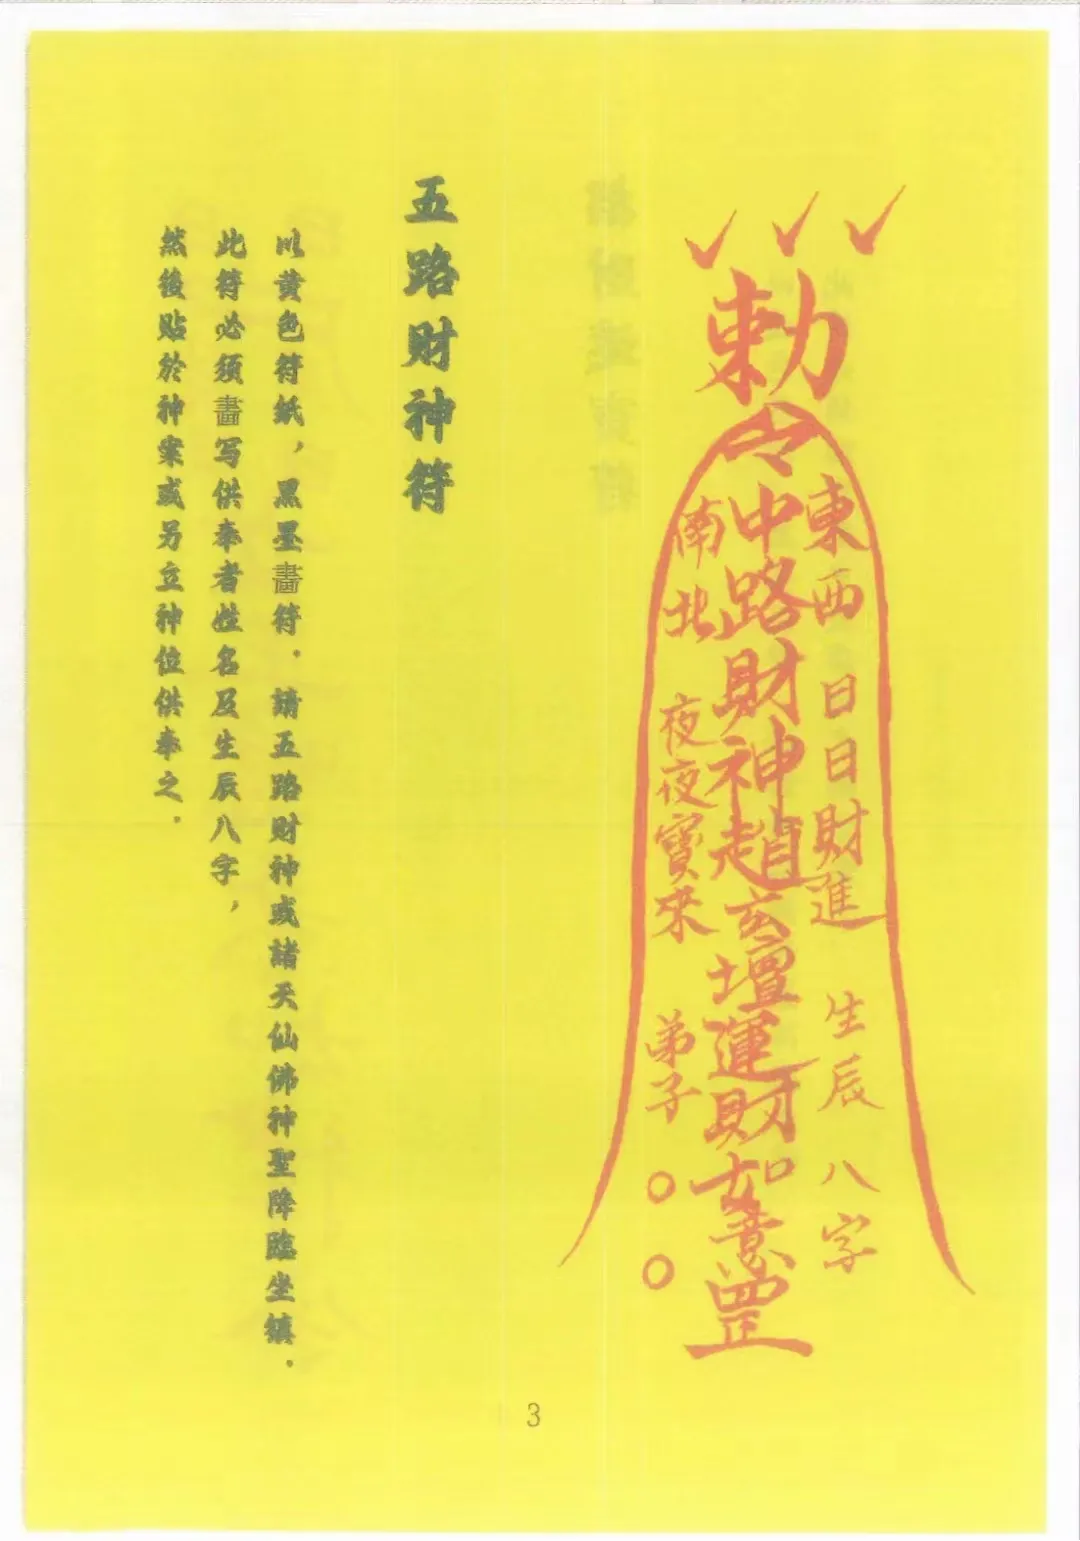 勅令
東西 日日財進 生辰八字
中路財神趙玄壇運財如意罡
南北 夜夜寶來 弟子○○
五路財神符
以黄色符紙，黑墨畵符．請五路財神或諸天仙佛神聖降臨坐鎮．
此符必须畵写供奉者姓名及生辰八字，
然後貼於神案或另立神位供奉之．
3